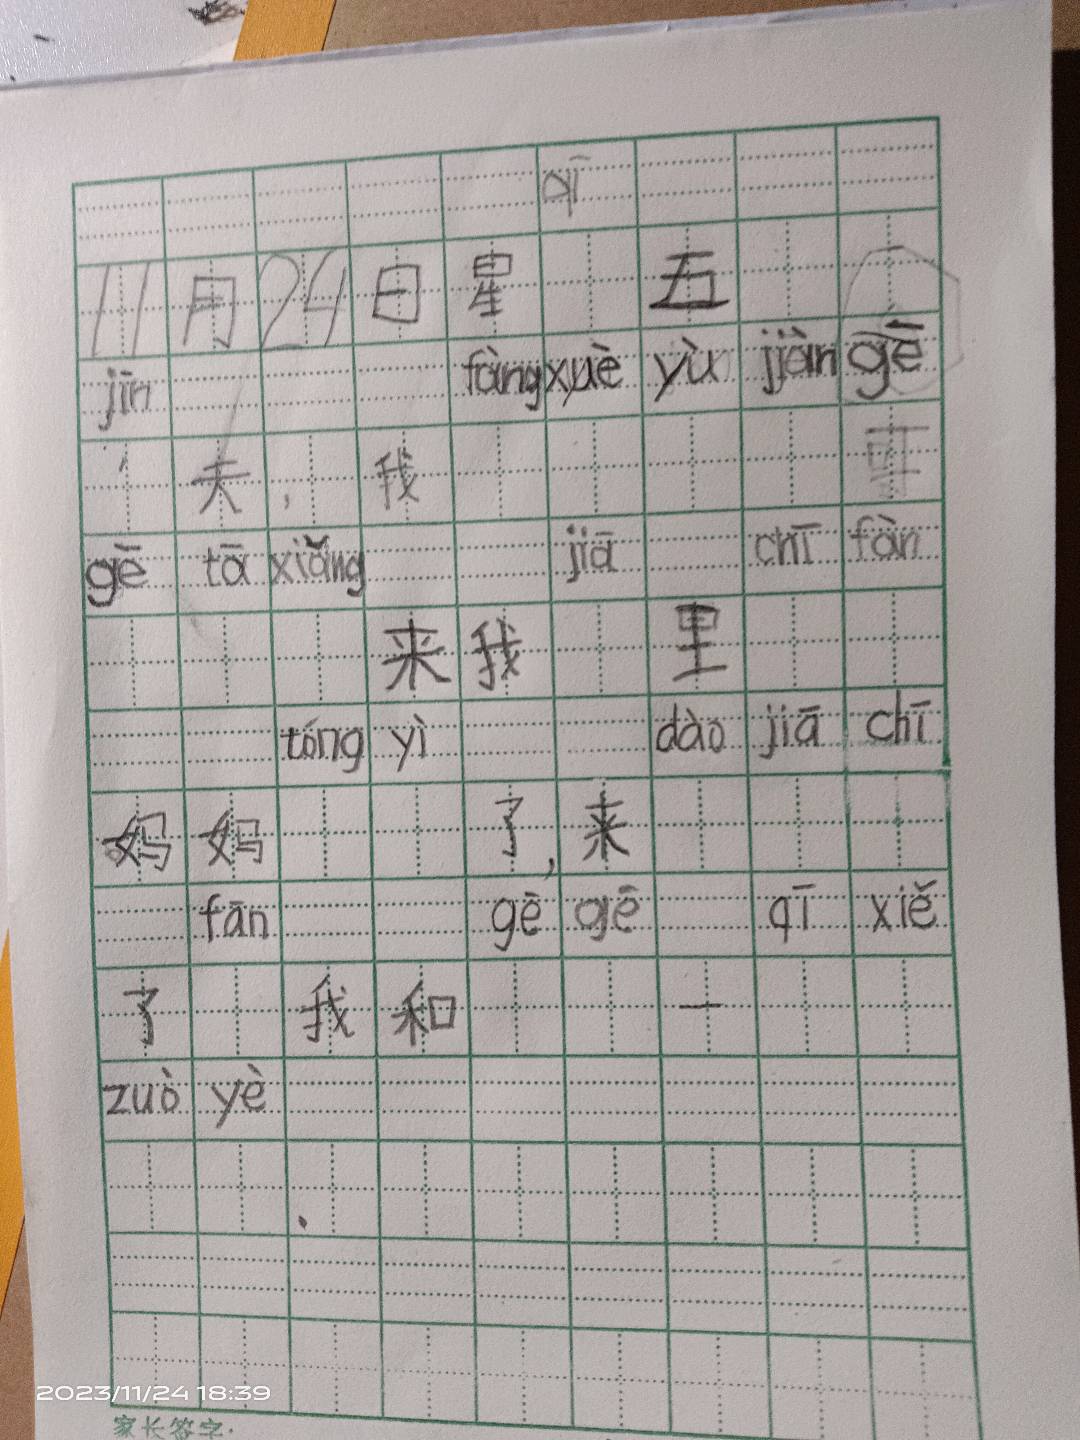 qī
11月24日星 五
jīn fàng xuè yù jiàn gē
天，我 哥
gē tā xiǎng jiā chī fàn
来我 里
tóng yì dào jiā chī
妈妈 了，来
fān gē gē qī xiě
了 我和 一
zuò yè
2023/11/24 18:39
家长签字: